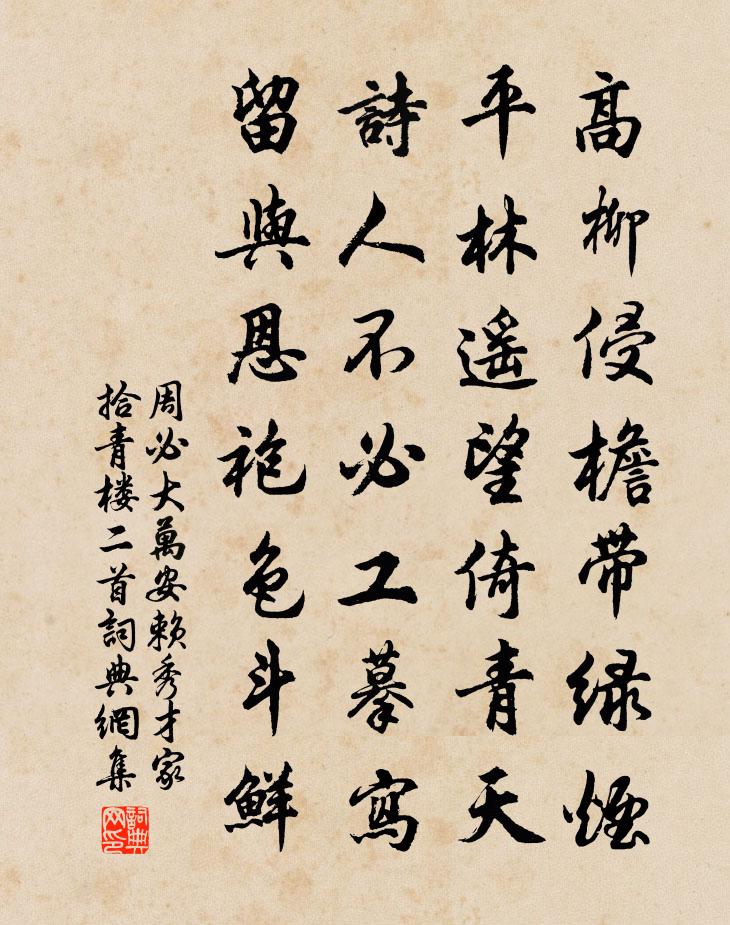 高柳侵檐带绿煙
平林遥望倚青天
詩人不必工摹寫
留與恩袍色斗鮮
周必大萬安賴秀才家
拾青楼二首詞典網集
詞典网印